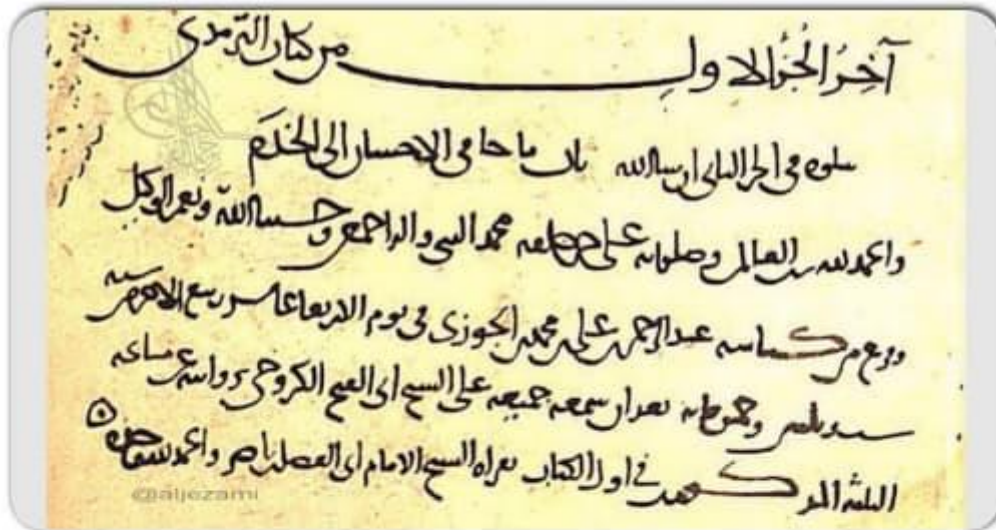 آخِرُ الجُزُ الاول من كتاب الترمدى
يتلوه في الجز الثاني ان شا الله باب ما جا في الاحسان الى الخدم
والحمد لله رب العالمين وصلواته على محمد النبي واله اجمعين وحسبنا الله ونعم الوكيل
وفرع من عبد الرحمن بن علي بن محمد بن الجوزى في يوم الاربعا عاشر ربيع الاخر من
سنه وخمس مايه بعد ان سمعه جميعه على الشيخ ابي الفتح الكروخي بروايته عن مشايخه
الثلثه المذكورين في اول الكتاب بقراه الشيخ الامام ابي الفضل بن ناصر والحمد لله
@aljezami